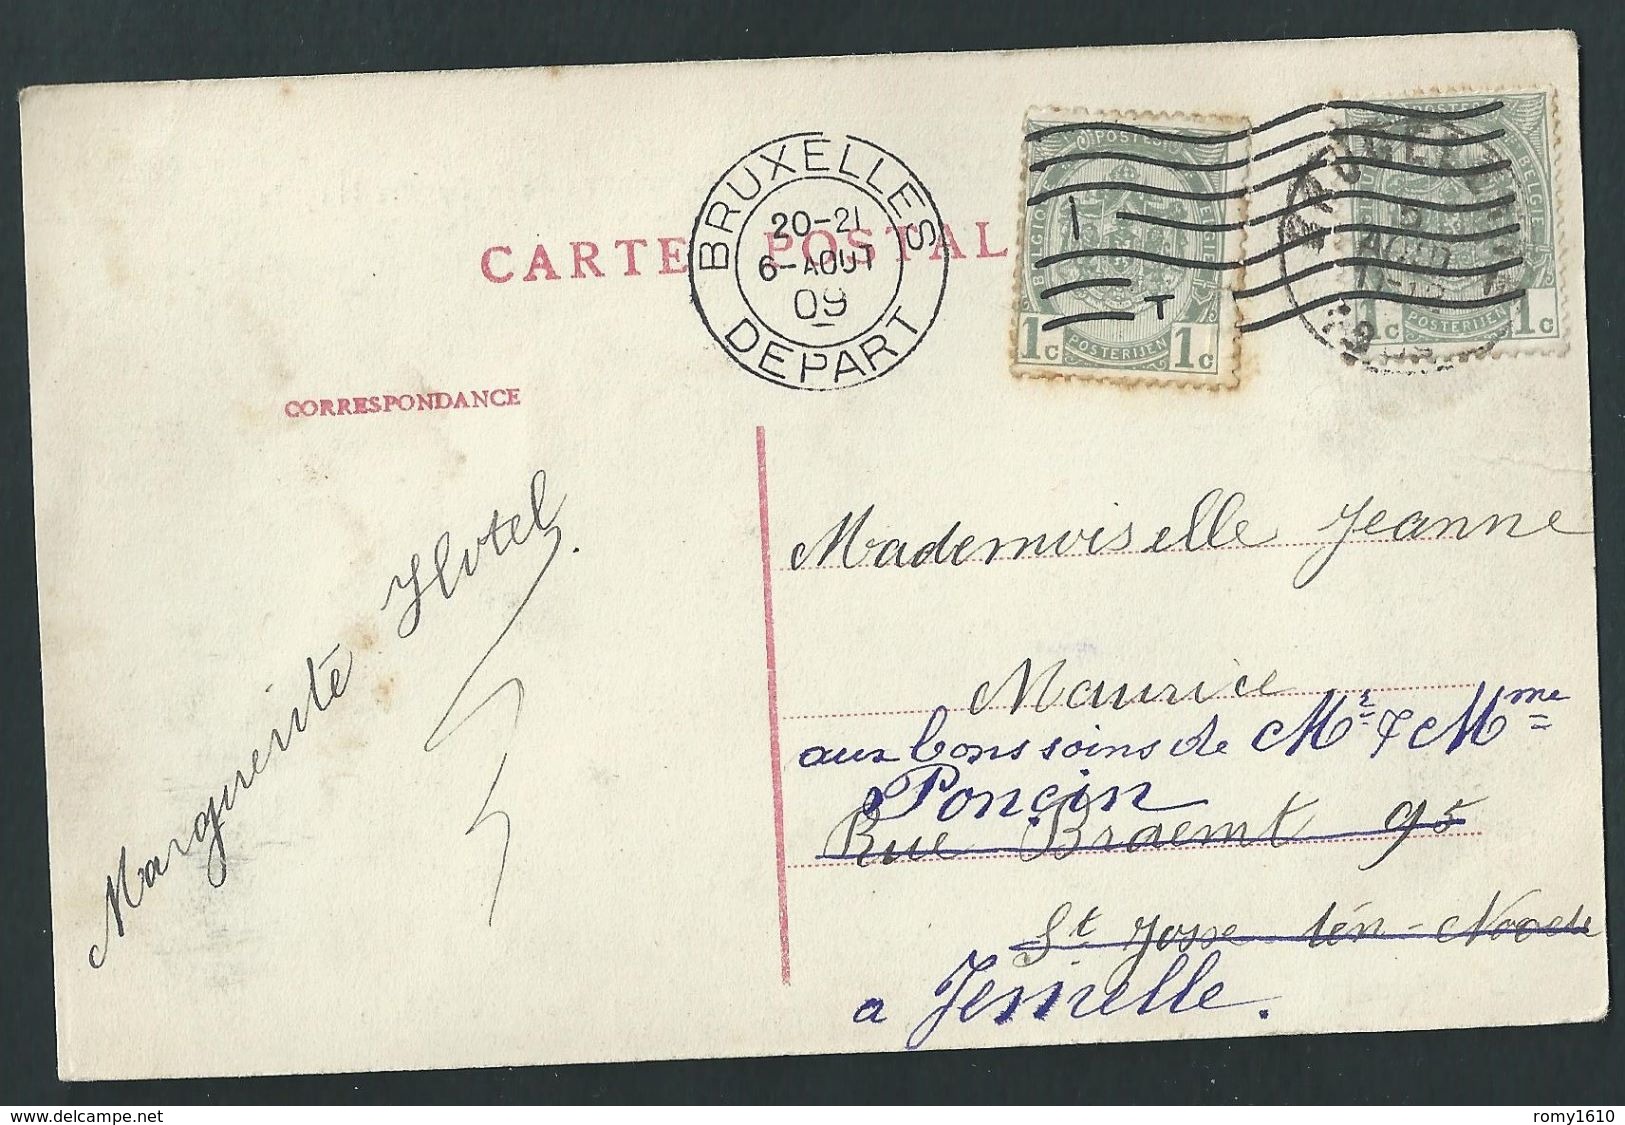 CARTE POSTALE
BRUXELLES
20-21
6-AOUT
09
DEPART
POSTES
BELGIQUE
BELGIË
1c
POSTERIJEN
1c
I
T
POSTES
BELGIE
1c
POSTERIJEN
1c
CORRESPONDANCE
Marguerite Hotel.
Mademoiselle Jeanne
Maurice
aux bons soins de Mr & Mme
Poncin
Rue Braemt 95
St Josse tén-Noode
a Jemelle.
delcampe.net
romy1610